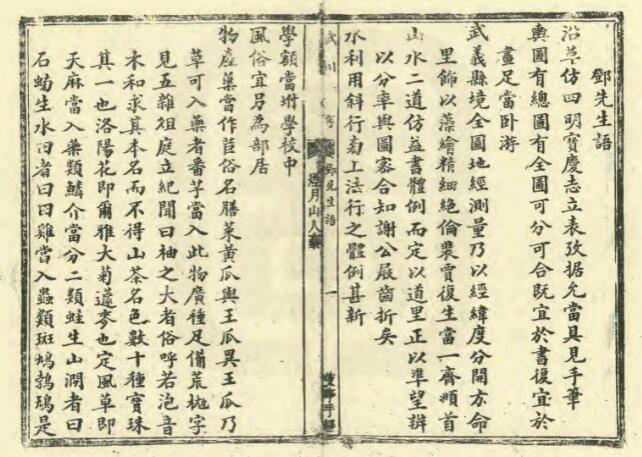 鄧先生語
沿革仿四明寶慶志立表攷据允當具見手筆
輿圖有總圖有全圖可分可合既宜於書復宜於
畫足當卧游
武義縣境全圖地經測量乃以經緯度分開方命
里飾以藻繪精細絶倫裴賈復生當一齊頫首
山水二道仿益書體例而定以道里正以準望辨
以分率與圖密合知謝公屐齒折矣
水利用斜行旁上法行之體例甚新
武川
鄧先生語
一
學額當坿學校中
風俗宜另為部居
物產藁當作苣俗名膳菜黃瓜與王瓜異王瓜乃
草可入藥者番芋當入此物廣種足備荒拋字
見五雜俎庭立紀聞曰柚之大者俗呼若泡音
木和求其本名而不得山茶名色數十種寶珠
其一也洛陽花即爾雅大菊蘧麥也定風草即
天麻當入藥類鱗介當分二類蛙生山澗者曰
石蚴生水田者曰田雞當入蟲類斑鳩鵓鴣是